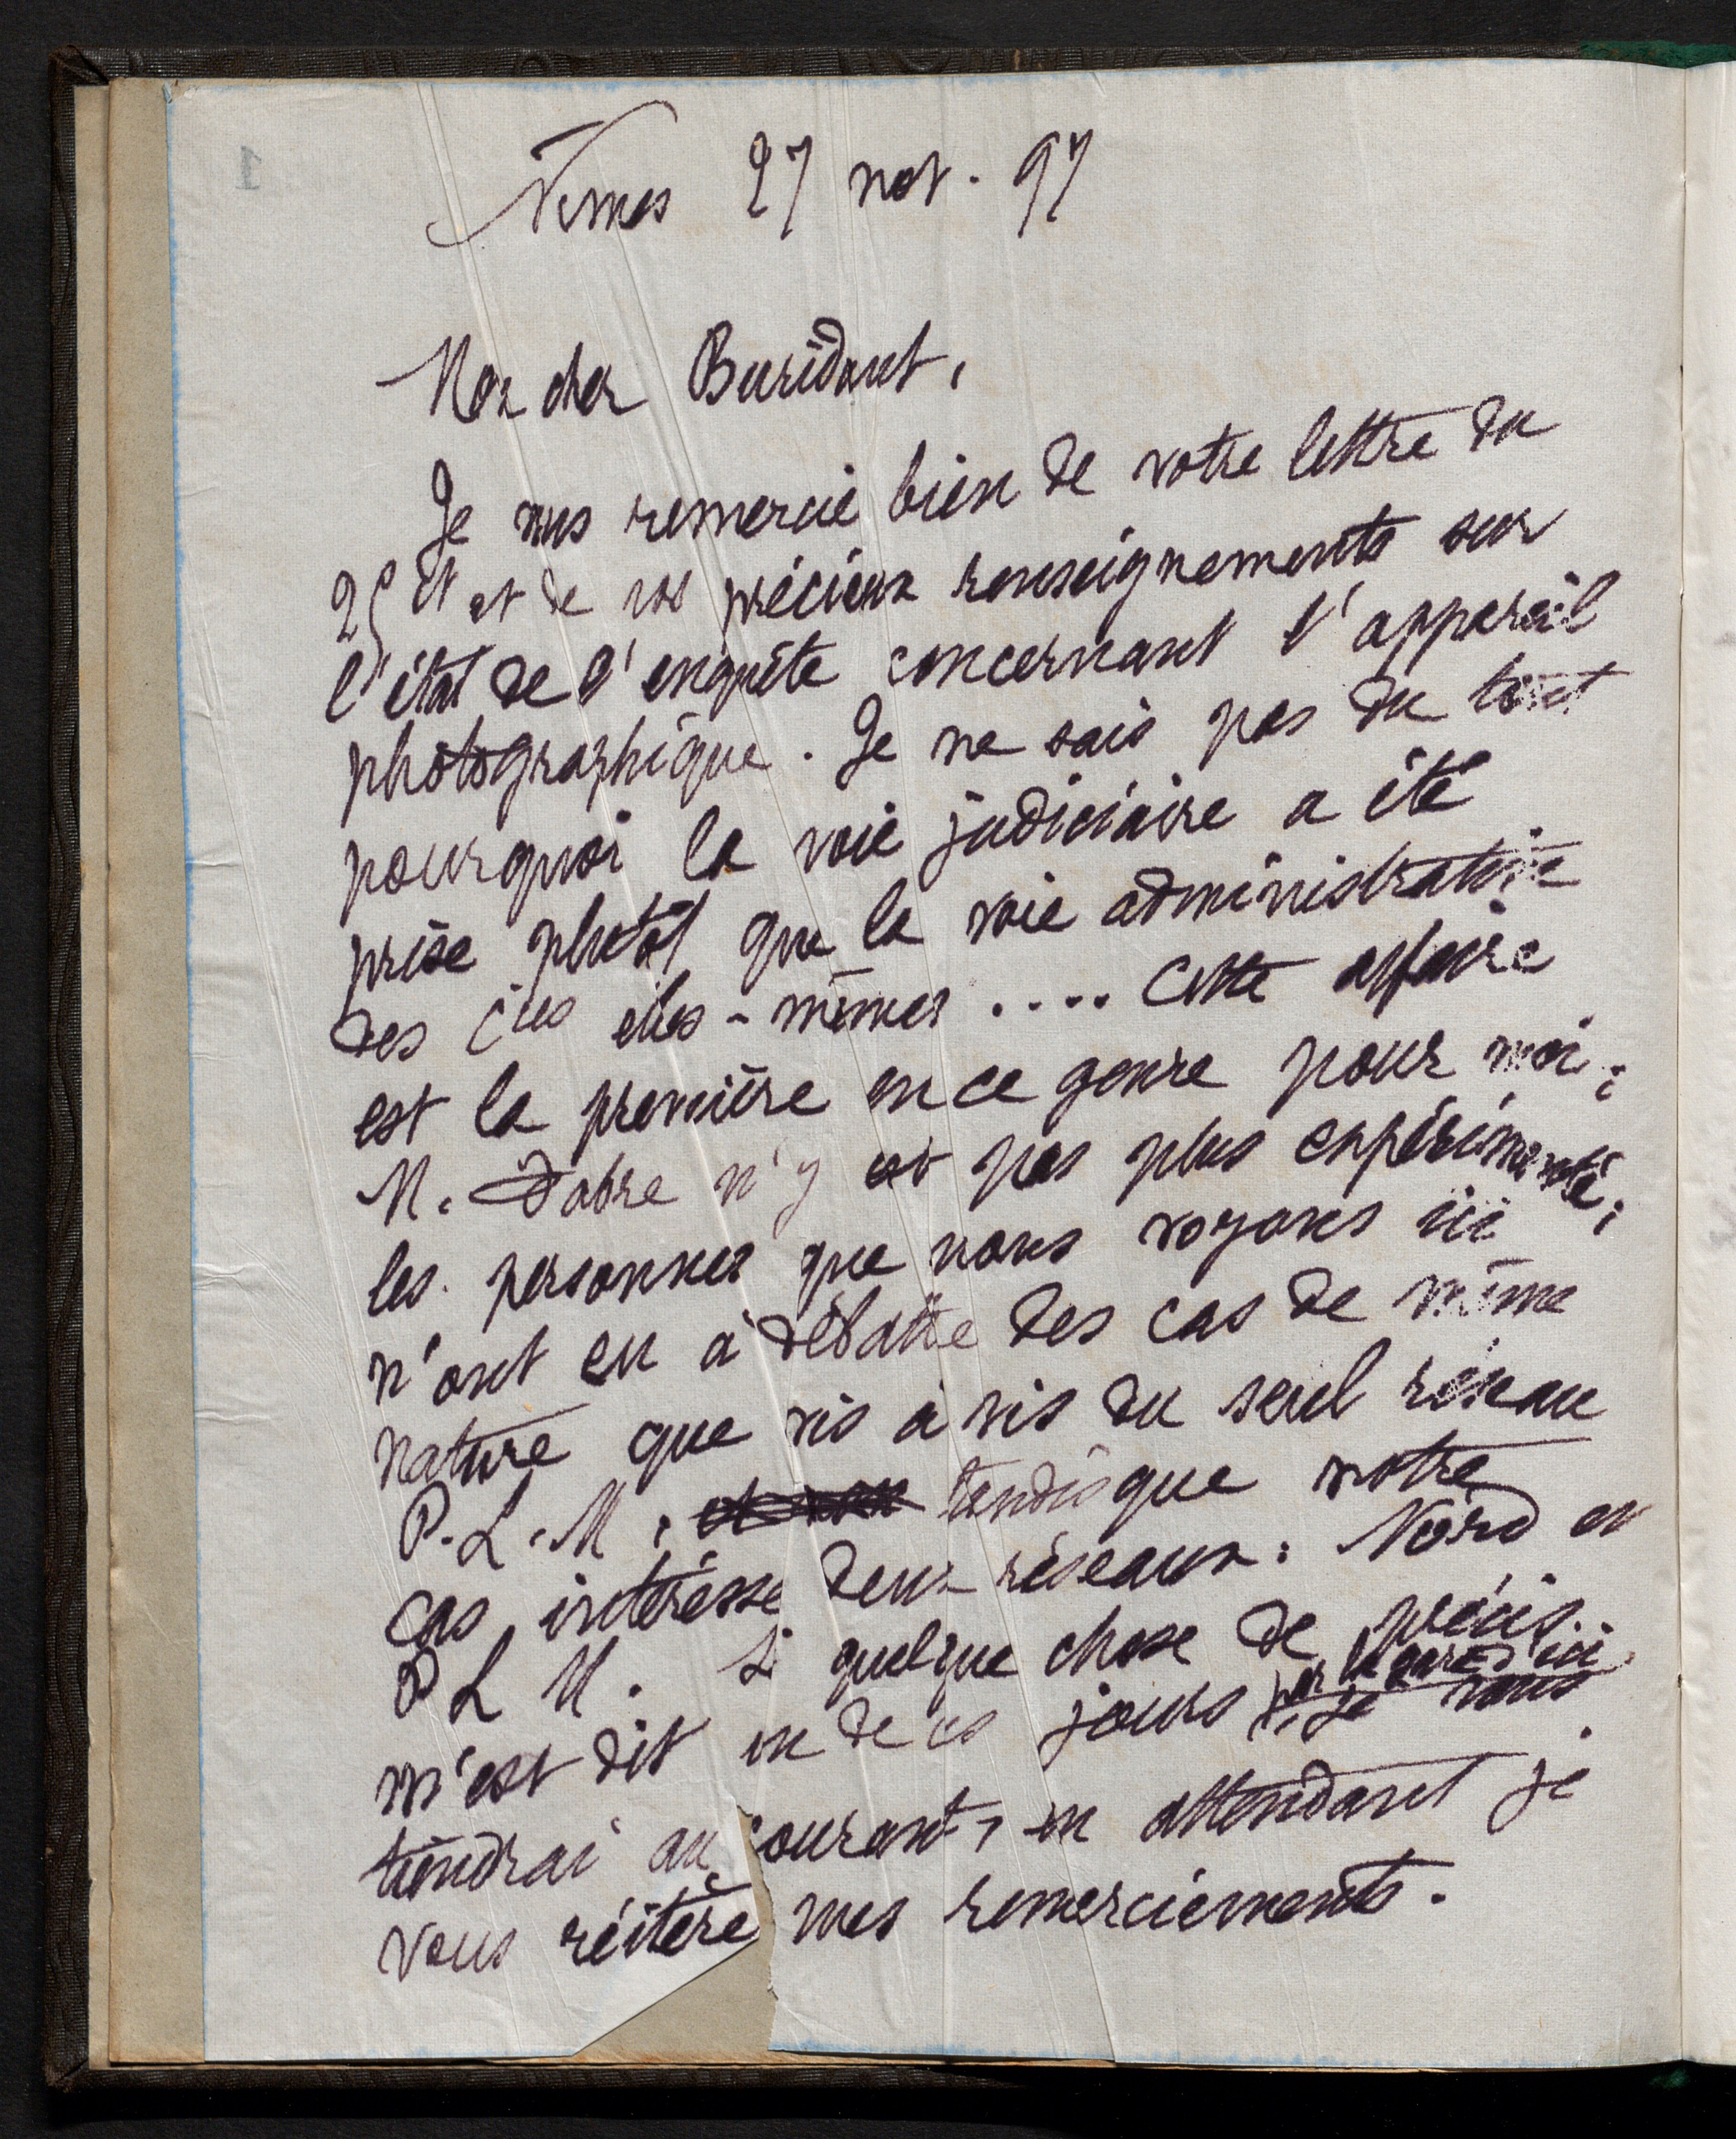 1
Nimes 27 nov. 97
Mon cher Buridant,
Je vous remercie bien de votre lettre du
25 et et de vos précieux renseignements sur
l'état de l'enquête concernant l'appareil
photographique. Je ne sais pas du tout
pourquoi la voie judiciaire a été
prise plutôt que la voie administrative
des Cies elles-mêmes .... Cette affaire
est la première en ce genre pour moi ;
M. Fabre n'y est pas plus expérimenté ;
les personnes que nous voyons ici
n'ont eu à débattre des cas de même
nature que vis à vis du seul réseau
P.L.M, tandis que notre
cas intéresse deux réseaux : Nord et
P L M. Si quelque chose de précis
m'est dit un de ces jours par la gare d'ici, je vous
tiendrai au courant, en attendant je
vous réitère mes remerciements.